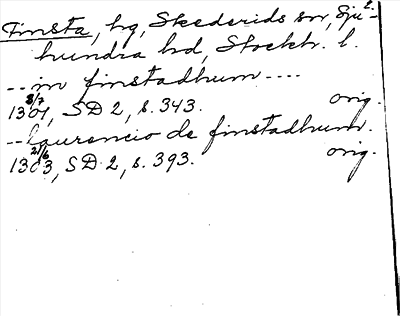 Finsta, hg, Skederids sn, Sju-
hundra hd, Stockh. l.
--- in finstadhum ----
1301 8/7, SD 2, s. 343. orig.
--- laurencio de finstadhum.
1303 21/6, SD 2, s. 393. orig.